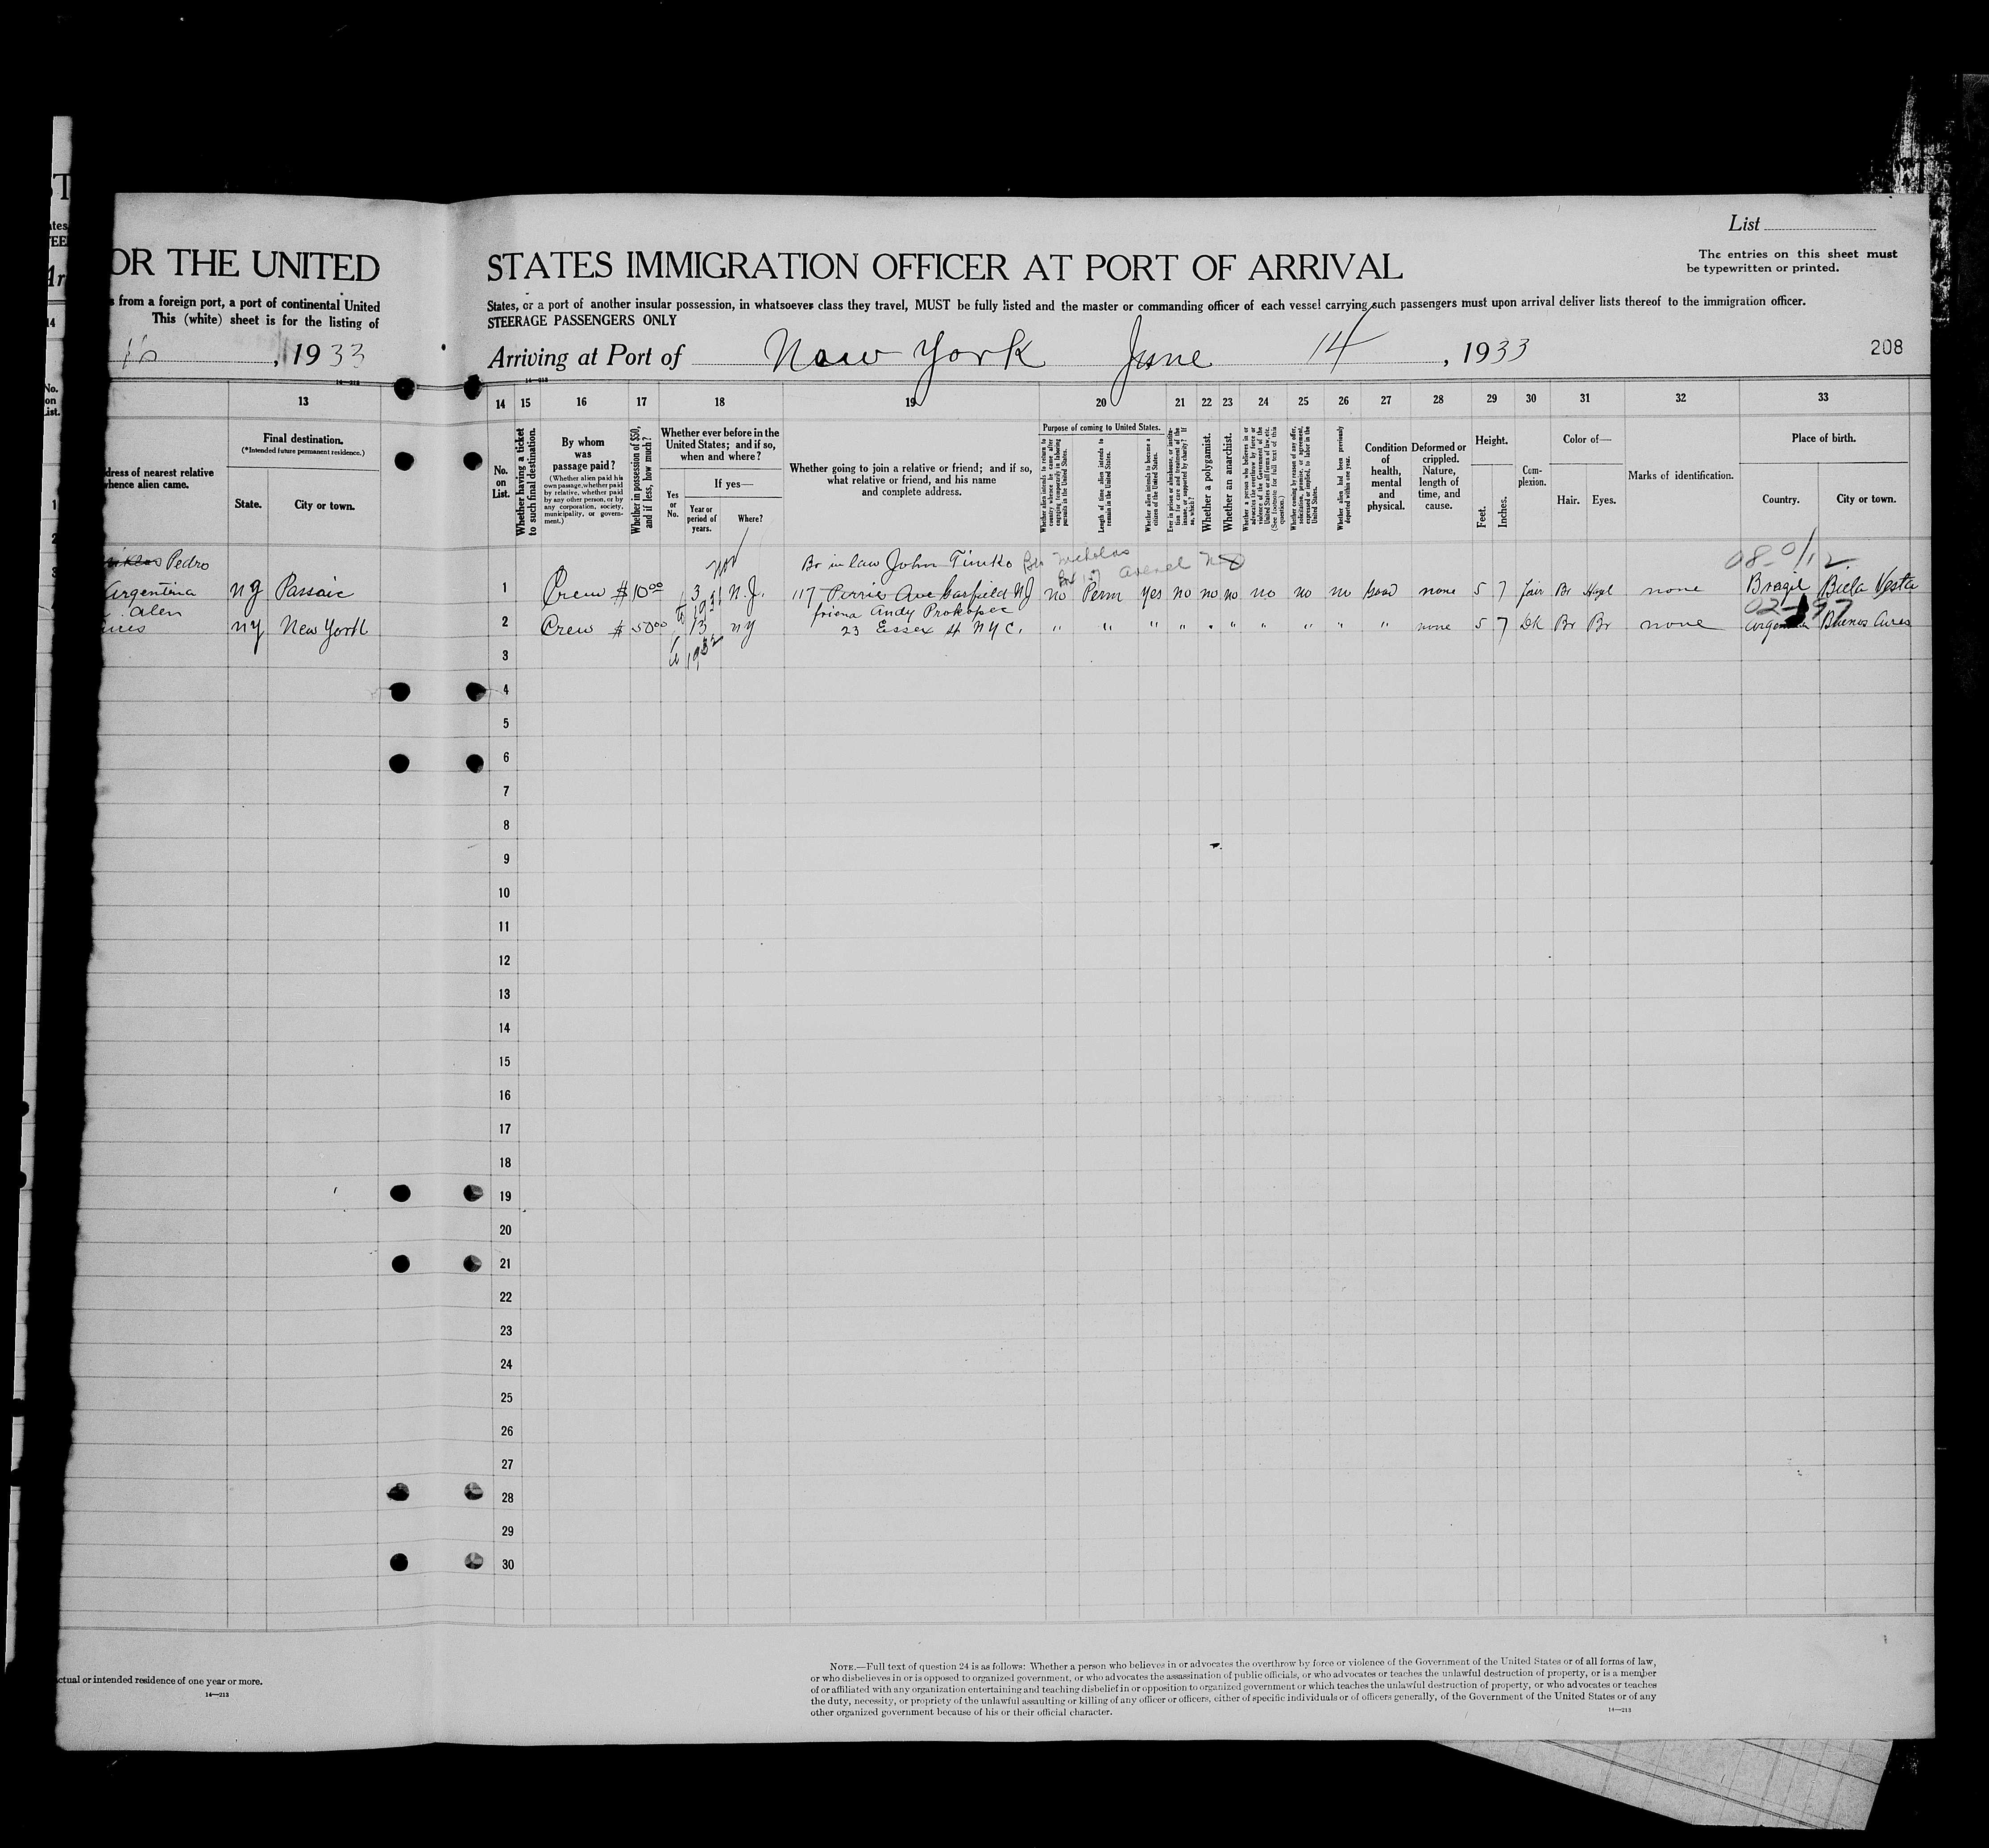 List
OR THE UNITED STATES IMMIGRATION OFFICER AT PORT OF ARRIVAL
The entries on this sheet must
be typewritten or printed.
s from a foreign port, a port of continental United States, or a port of another insular possession, in whatsoever class they travel, MUST be fully listed and the master or commanding officer of each vessel carrying such passengers must upon arrival deliver lists thereof to the immigration officer.
This (white) sheet is for the listing of STEERAGE PASSENGERS ONLY
, 1933
Arriving at Port of New York June 14, 1933
208
13 14 15 16 17 18 19 20 21 22 23 24 25 26 27 28 29 30 31 32 33
dress of nearest relative
whence alien came.
Final destination.
(*Intended future permanent residence.)
State.
City or town.
No.
on
List.
Whether having a ticket
to such final destination.
By whom
was
passage paid?
(Whether alien paid his
own passage, whether paid
by relative, whether paid
by any other person, or by
any corporation, society,
municipality, or govern-
ment.)
Whether in possession of $50,
and if less, how much?
Whether ever before in the
United States; and if so,
when and where?
Yes
or
No.
If yes—
Year or
period of
years.
Where?
Whether going to join a relative or friend; and if so,
what relative or friend, and his name
and complete address.
Purpose of coming to United States.
Whether alien intends to return to
country whence he came after
engaging temporarily in laboring
pursuits in the United States.
Length of time alien intends to
remain in the United States.
Whether alien intends to become a
citizen of the United States.
Ever in prison or almshouse, or institu-
tion for care and treatment of the
insane, or supported by charity? If
so, which?
Whether a polygamist.
Whether an anarchist.
Whether a person who believes in or
advocates the overthrow by force or
violence of the Government of the
United States or all forms of law, etc.
(See footnote for full text of this
question.)
Whether coming by reason of any offer,
solicitation, promise, or agreement,
expressed or implied, to labor in the
United States.
Whether alien had been previously
deported within one year.
Condition
of
health,
mental
and
physical.
Deformed or
crippled.
Nature,
length of
time, and
cause.
Height.
Feet.
Inches.
Com-
plexion.
Color of—
Hair.
Eyes.
Marks of identification.
Place of birth.
Country.
City or town.
Pedro Br in law John Timko Bro Nicholas
Avenel NJ
Argentina NJ Passaic 1 Crew $10.00 3 1931 N.J. 117 Ave Garfield NJ no Perm Yes no no no no no no Good none 5 7 fair Br Hazl none Brazil Biela Vesta
friend Andy Prokopec
NY New York 2 Crew $50.00 13 NY 23 Essex St NYC. " " " " " " " " " " none 5 7 Dk Br Br none Argentina Buenos Aires
1932
3
4
5
6
7
8
9
10
11
12
13
14
15
16
17
18
19
20
21
22
23
24
25
26
27
28
29
30
ctual or intended residence of one year or more.
14—213
NOTE.—Full text of question 24 is as follows: Whether a person who believes in or advocates the overthrow by force or violence of the Government of the United States or of all forms of law,
or who disbelieves in or is opposed to organized government, or who advocates the assassination of public officials, or who advocates or teaches the unlawful destruction of property, or is a member
of or affiliated with any organization entertaining and teaching disbelief in or opposition to organized government or which teaches the unlawful destruction of property, or who advocates or teaches
the duty, necessity, or propriety of the unlawful assaulting or killing of any officer or officers, either of specific individuals or of officers generally, of the Government of the United States or of any
other organized government because of his or their official character.
14—213